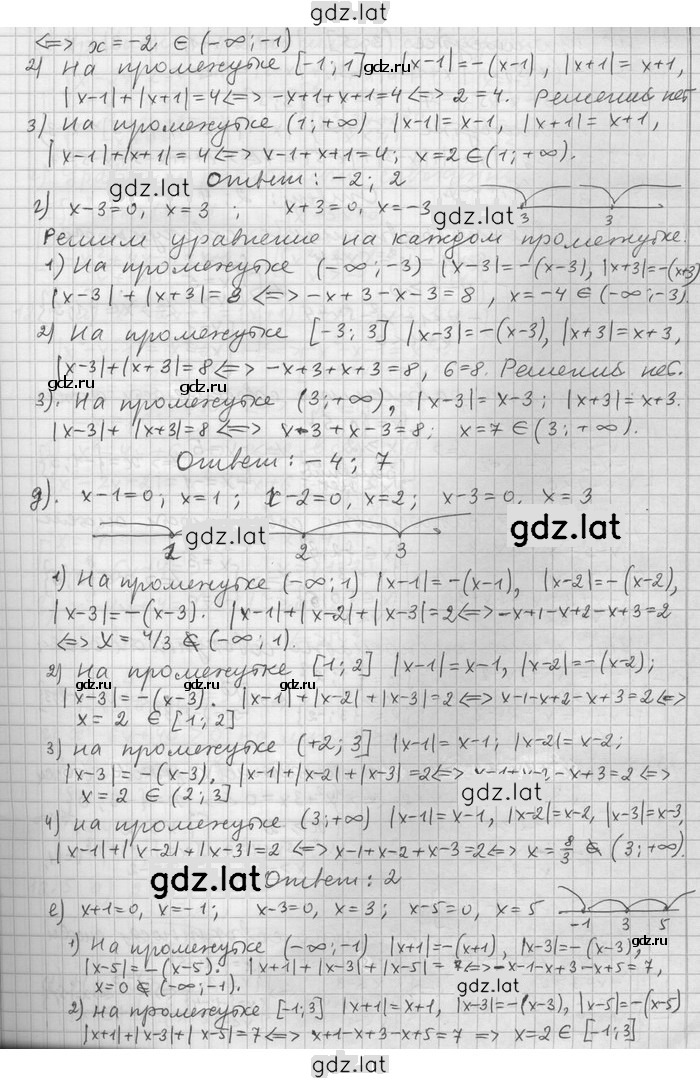 gdz.lat
<=> x = -2 ∈ (-∞; -1)
2) На промежутке [-1; 1] gdz.ru |x-1| = -(x-1), |x+1| = x+1,
|x-1| + |x+1| = 4 <=> -x+1+x+1 = 4 <=> 2 = 4. Решений нет
gdz.ru
3) На промежутке (1; +∞) |x-1| = x-1, |x+1| = x+1,
|x-1| + |x+1| = 4 <=> x-1+x+1 = 4; x = 2 ∈ (1; +∞).
Ответ: -2; 2
gdz.lat
г) x-3=0, x=3; x+3=0, x=-3 gdz.lat 3 3
Решим уравнение на каждом промежутке.
1) На промежутке (-∞; -3) |x-3| = -(x-3), |x+3| = -(x+3)
gdz.ru
|x-3| + |x+3| = 8 <=> -x+3-x-3 = 8, x = -4 ∈ (-∞; -3).
2) На промежутке [-3; 3] |x-3| = -(x-3), |x+3| = x+3,
|x-3| + |x+3| = 8 <=> -x+3+x+3 = 8, 6 = 8. Решений нет.
gdz.ru gdz.ru
3). На промежутке (3; +∞), |x-3| = x-3; |x+3| = x+3.
|x-3| + |x+3| = 8 <=> x-3+x-3 = 8; x = 7 ∈ (3; +∞).
Ответ: -4; 7
д). x-1=0; x=1; x-2=0, x=2; x-3=0, x=3
gdz.lat gdz.lat
1 2 3
1) На промежутке (-∞; 1) |x-1| = -(x-1), |x-2| = -(x-2),
|x-3| = -(x-3). |x-1| + |x-2| + |x-3| = 2 <=> -x+1-x+2-x+3 = 2
<=> x = 4/3 ∉ (-∞; 1).
2) На промежутке [1; 2] |x-1| = x-1, |x-2| = -(x-2);
gdz.ru gdz.ru
|x-3| = -(x-3). |x-1| + |x-2| + |x-3| = 2 <=> x-1-x+2-x+3 = 2 <=>
x = 2 ∈ [1; 2]
3) на промежутке (+2; 3] |x-1| = x-1; |x-2| = x-2;
|x-3| = -(x-3), |x-1| + |x-2| + |x-3| = 2 <=> -x+3 = 2 <=>
x = 2 ∈ (2; 3]
gdz.lat
4) на промежутке (3; +∞) |x-1| = x-1, |x-2| = x-2, |x-3| = x-3,
gdz.ru
|x-1| + |x-2| + |x-3| = 2 <=> x-1+x-2+x-3 = 2 <=> x = 8/3 ∉ (3; +∞).
gdz.lat
Ответ: 2
е) x+1=0, x=-1; x-3=0, x=3; x-5=0, x=5 -1 3 5
1) На промежутке (-∞; -1) |x+1| = -(x+1), |x-3| = -(x-3),
gdz.ru gdz.ru
|x-5| = -(x-5). |x+1| + |x-3| + |x-5| = 7 <=> -x-1-x+3-x+5 = 7,
x = 0 ∉ (-∞; -1).
gdz.lat
2) на промежутке [-1; 3] |x+1| = x+1, |x-3| = -(x-3), |x-5| = -(x-5)
|x+1| + |x-3| + |x-5| = 7 <=> x+1-x+3-x+5 = 7 => x = 2 ∈ [-1; 3]
gdz.lat